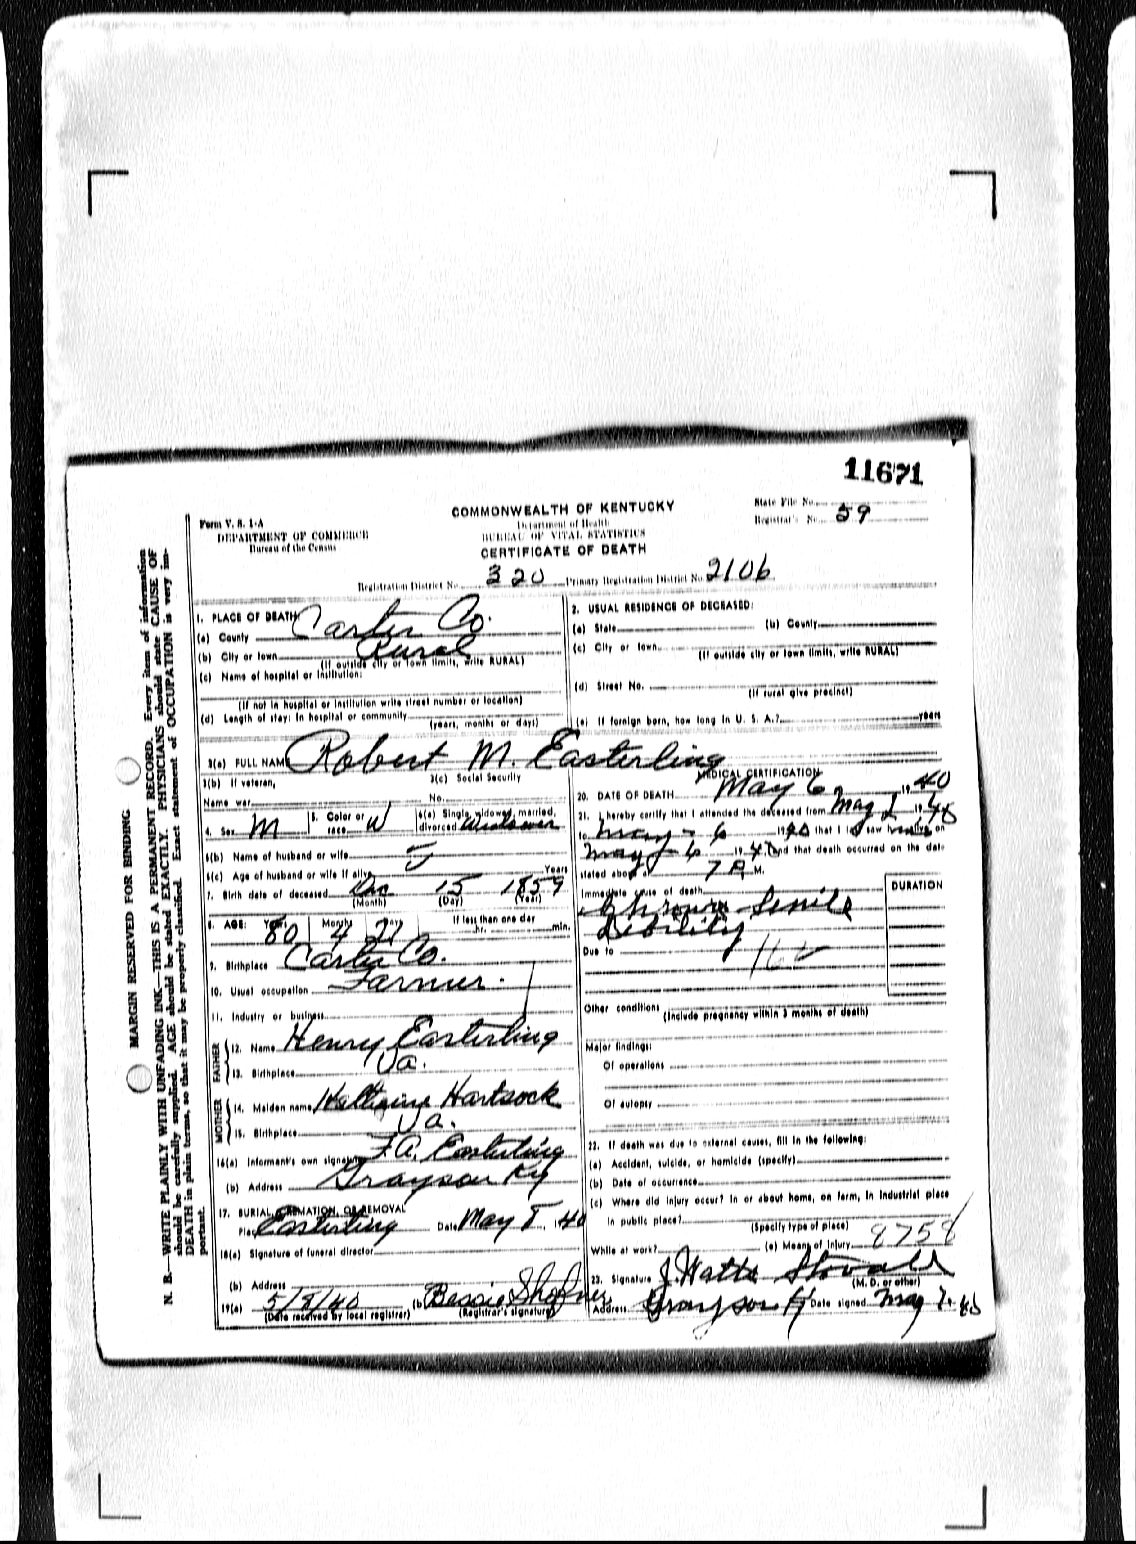 11671
Form V. S. 1-A
DEPARTMENT OF COMMERCE
Bureau of the Census
COMMONWEALTH OF KENTUCKY
Department of Health
BUREAU OF VITAL STATISTICS
CERTIFICATE OF DEATH
State File No.
Registrar's No. 59
Registration District No. 320 Primary Registration District No. 2106
MARGIN RESERVED FOR BINDING
N. B.—WRITE PLAINLY WITH UNFADING INK—THIS IS A PERMANENT RECORD. Every item of information
should be carefully supplied. AGE should be stated EXACTLY. PHYSICIANS should state CAUSE OF
DEATH in plain terms, so that it may be properly classified. Exact statement of OCCUPATION is very im-
portant.
1. PLACE OF DEATH
(a) County Carter Co.
(b) City or town Rural
(If outside city or town limits, write RURAL)
(c) Name of hospital or institution:
(If not in hospital or institution write street number or location)
(d) Length of stay: In hospital or community
(years, months or days)
2. USUAL RESIDENCE OF DECEASED:
(a) State (b) County
(c) City or town
(If outside city or town limits, write RURAL)
(d) Street No.
(If rural give precinct)
(e) If foreign born, how long in U. S. A.? years
3(a) FULL NAME Robert M. Easterling
3(b) If veteran, 3(c) Social Security
Name war No.
4. Sex M 5. Color or race W 6(a) Single, widowed, married, divorced Widower
6(b) Name of husband or wife
6(c) Age of husband or wife if alive Years
7. Birth date of deceased Dec 15 1859
(Month) (Day) (Year)
8. AGE: Years 80 Months 4 Days 22 If less than one day hr. min.
9. Birthplace Carter Co.
10. Usual occupation Farmer.
11. Industry or business
FATHER
12. Name Henry Easterling
13. Birthplace Va.
MOTHER
14. Maiden name Katherine Hartsock
15. Birthplace Va.
16(a) Informant's own signature F. A. Easterling
(b) Address Grayson Ky
17. BURIAL, CREMATION, OR REMOVAL
Place Easterling Date May 8, 1940
18(a) Signature of funeral director
(b) Address
19(a) 5/8/40 (b) Bessie Shofner
(Date received by local registrar) (Registrar's signature)
MEDICAL CERTIFICATION
20. DATE OF DEATH May 6 1940
21. I hereby certify that I attended the deceased from May 1 1940
to May - 6 1940 that I last saw him alive on
May - 6 1940 and that death occurred on the date
stated above 7 P. M.
Immediate cause of death
Chronic Senile
Debility
DURATION
Due to
162
Other conditions
(Include pregnancy within 3 months of death)
Major findings:
Of operations
Of autopsy
22. If death was due to external causes, fill in the following:
(a) Accident, suicide, or homicide (specify)
(b) Date of occurrence
(c) Where did injury occur? In or about home, on farm, in industrial place
in public place?
(Specify type of place)
While at work? (e) Means of injury 8758
23. Signature J. Watts Stovall
(M. D. or other)
Address Grayson Ky Date signed May 7. 40